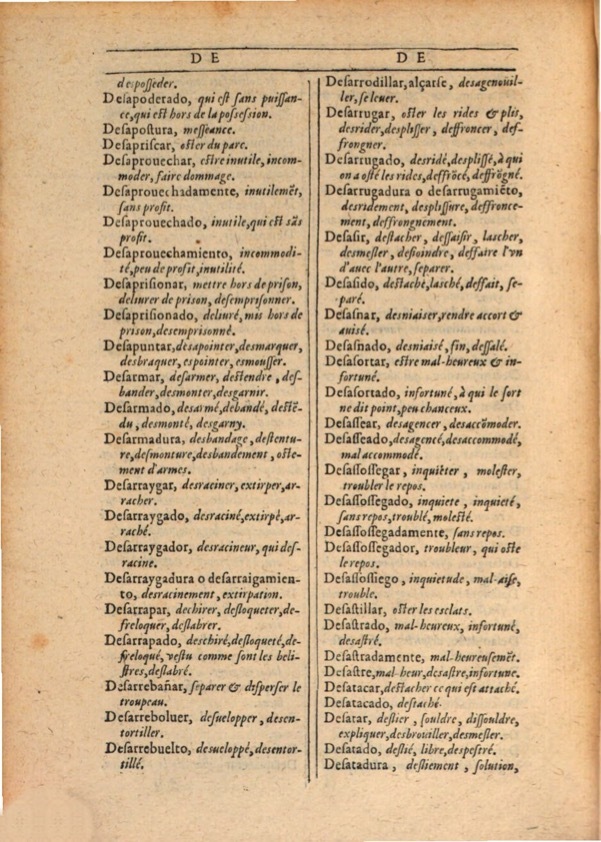 DE
DE
deposseder.
Desapoderado, qui est sans puissan-
ce, qui est hors de la possession.
Desapostura, messeance.
Desapriscar, oster du parc.
Desaprouechar, estre inutile, incom-
moder, faire dommage.
Desaprouechadamente, inutilemẽt,
sans profit.
Desaprouechado, inutile, qui est sãs
profit.
Desaprouechamiento, incommodi-
té, peu de profit, inutilité.
Desaprisionar, mettre hors de prison,
deliurer de prison, desemprisonner.
Desaprisionado, deliuré, mis hors de
prison, desemprisonné.
Desapuntar, desapointer, desmarquer,
desbraquer, espointer, esmousser.
Desarmar, desarmer, destendre, des-
bander, desmonter, desgarnir.
Desarmado, desarmé, debandé, destẽ-
du, desmonté, desgarny.
Desarmadura, desbandage, destentu-
re, desmonture, desbandement, oste-
ment d'armes.
Desarraygar, desraciner, extirper, ar-
racher.
Desarraygado, desraciné, extirpé, ar-
raché.
Desarraygador, desracineur, qui des-
racine.
Desarraygadura o desarraigamien-
to, desracinement, extirpation.
Desarrapar, dechirer, desloqueter, de-
freloquer, deslabrer.
Desarrapado, deschiré, desloqueté, de-
freloqué, vestu comme sont les beli-
stres, deslabré.
Desarrebañar, separer & disperser le
troupeau.
Desarreboluer, desuelopper, desen-
tortiller.
Desarrebuelto, desueloppé, desentor-
tillé.
Desarrodillar, alçarse, desagenouil-
ler, se leuer.
Desarrugar, oster les rides & plis,
desrider, desplisser, deffroncer, des-
frongner.
Desarrugado, desridé, desplissé, à qui
on a osté les rides, deffrõcé, deffrõgné.
Desarrugadura o desarrugamiẽto,
desridement, desplissure, deffronce-
ment, deffrongnement.
Desasir, destacher, dessaisir, lascher,
desmesler, desioindre, deffaire l'vn
d'auec l'autre, separer.
Desasido, destaché, lasché, deffait, se-
paré.
Desasnar, desniaiser, rendre accort &
auisé.
Desasnado, desniaisé, fin, dessalé.
Desasortar, estre mal-heureux & in-
fortuné.
Desasortado, infortuné, à qui le sort
ne dit point, peu chanceux.
Desassear, desagencer, desaccõmoder.
Desasseado, desagencé, desaccommodé,
mal accommodé.
Desassossegar, inquieter, molester,
troubler le repos.
Desassossegado, inquiete, inquieté,
sans repos, troublé, molesté.
Desassossegadamente, sans repos.
Desassossegador, troubleur, qui oste
le repos.
Desassossiego, inquietude, mal-aise,
trouble.
Desastillar, oster les esclats.
Desastrado, mal-heureux, infortuné,
desastré.
Desastradamente, mal-heureusemẽt.
Desastre, mal-heur, desastre, infortune.
Desatacar, destacher ce qui est attaché.
Desatacado, destaché.
Desatar, deslier, souldre, dissouldre,
expliquer, desbrouiller, desmesler.
Desatado, deslié, libre, despestré.
Desatadura, desliement, solution,